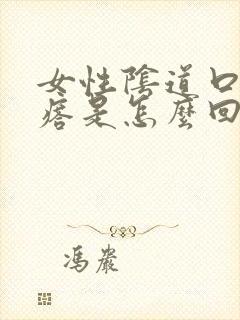 女性陰道口
痞是怎麼回
馮嚴